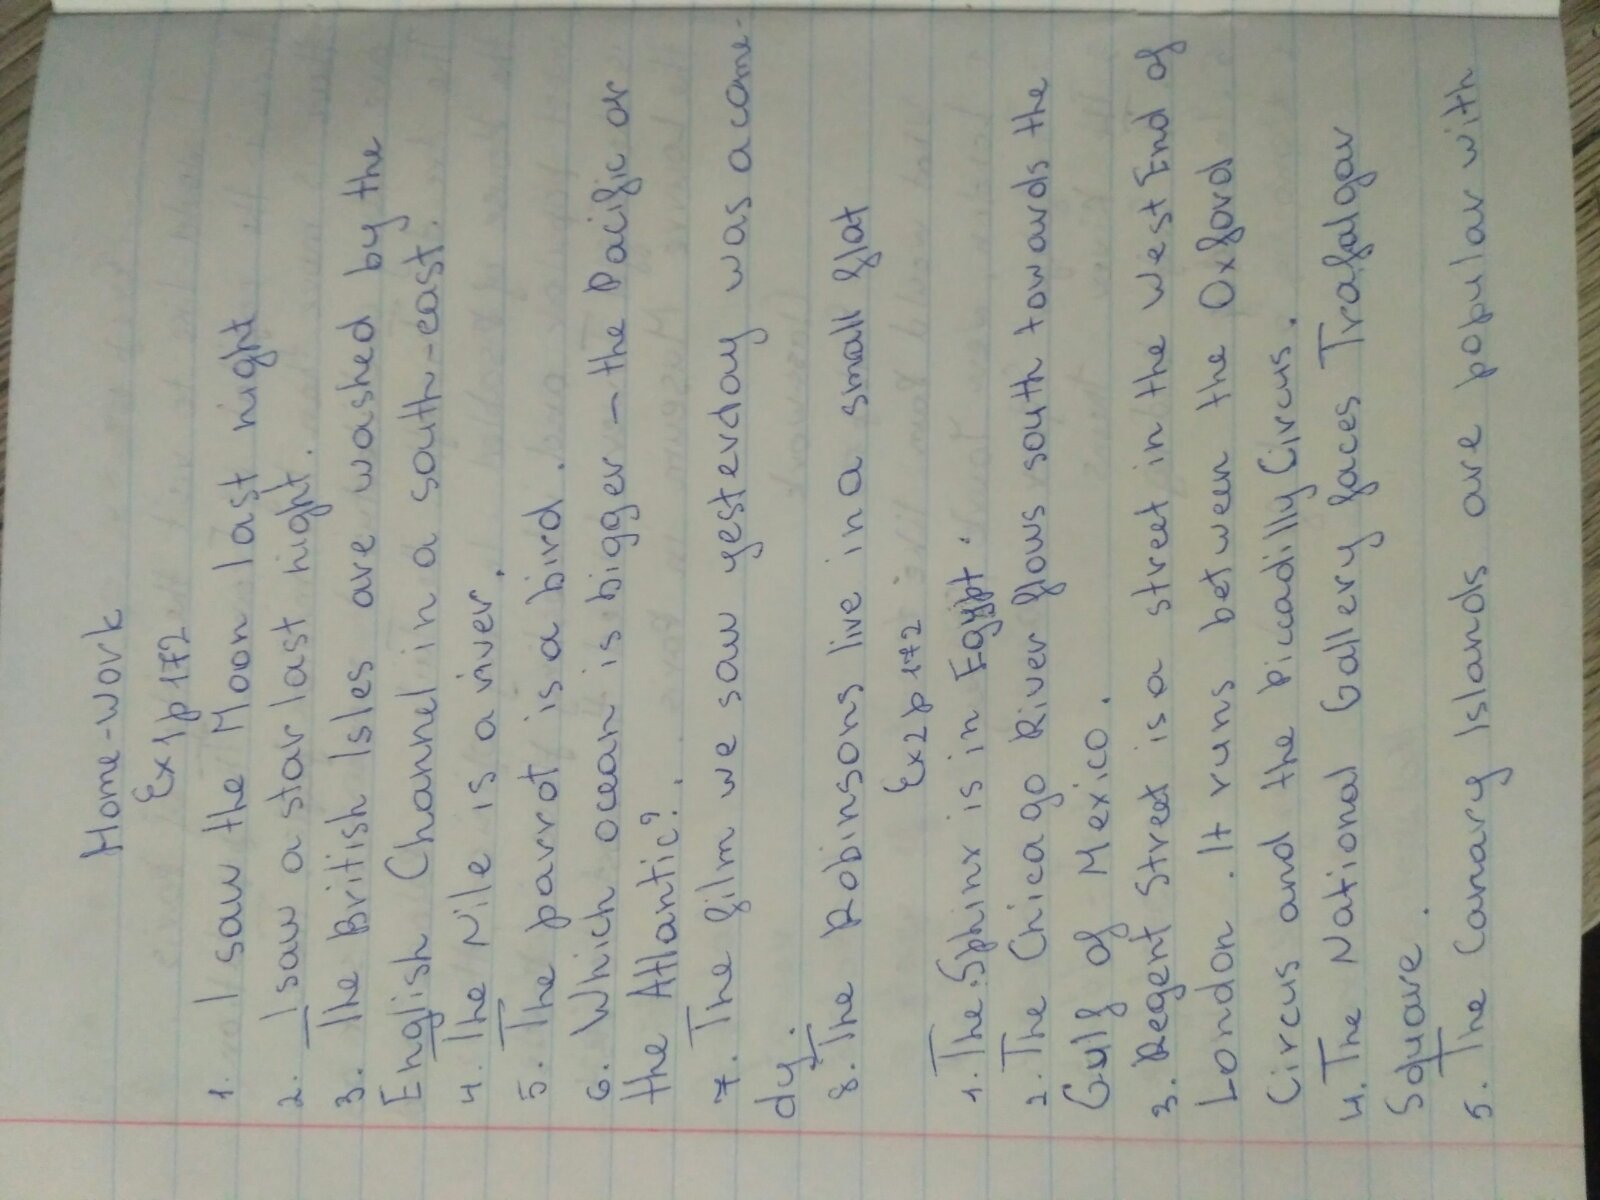 Home-work
Ex1p172
1. I saw the Moon last night
2. I saw a star last night.
3. The British Isles are washed by the
English Channel in a south-east.
4. The Nile is a river.
5. The parrot is a bird.
6. Which ocean is bigger - the Pacific or
the Atlantic?
7. The film we saw yesterday was a come-
dy.
8. The Robinsons live in a small flat
Ex2p172
1. The Sphinx is in Egypt.
2. The Chicago River flows south towards the
Gulf of Mexico.
3. Regent Street is a street in the West End of
London. It runs between the Oxford
Circus and the Piccadilly Circus.
4. The National Gallery faces Trafalgar
Square.
5. The Canary Islands are popular with